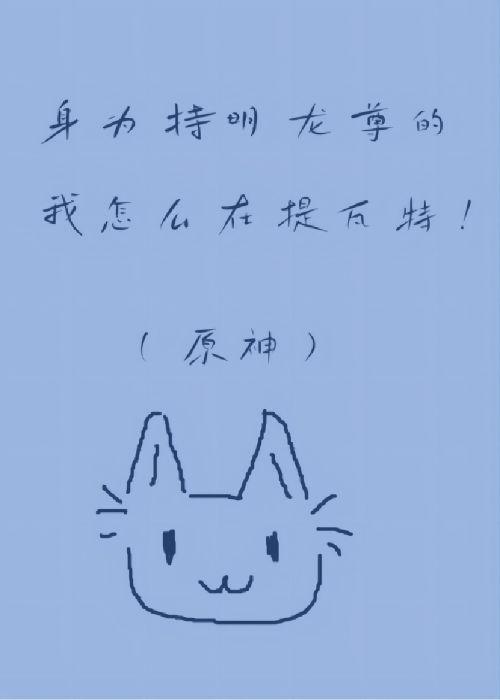 身为持明龙尊的
我怎么在提瓦特！
（原神）